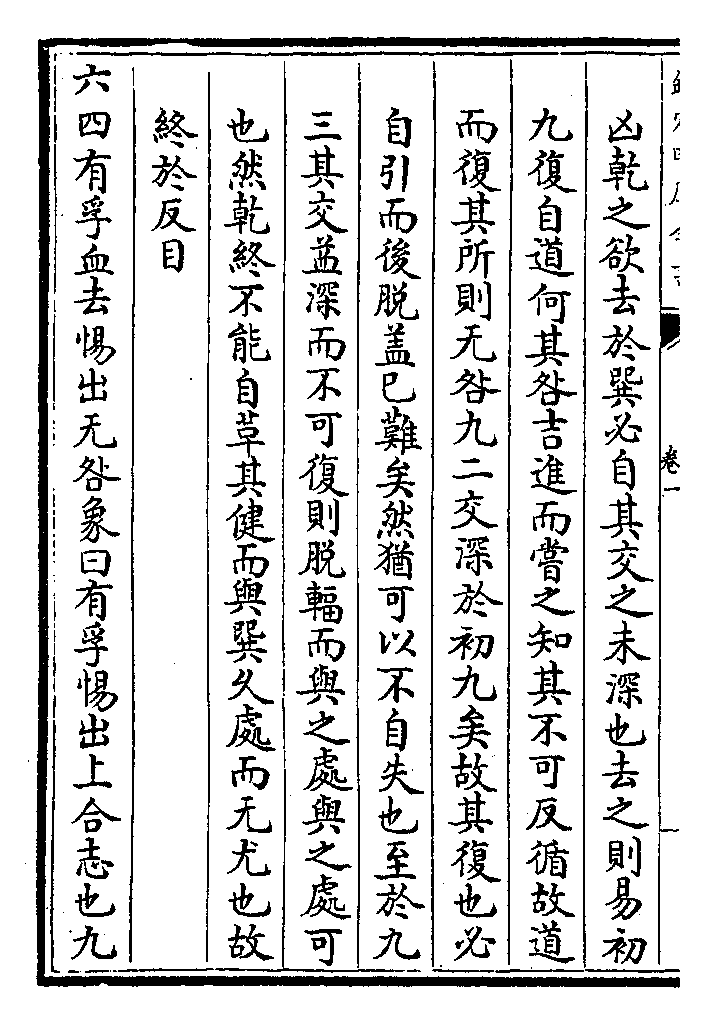 凶乾之欲去於巽必自其交之未深也去之則易初
九復自道何其咎吉進而嘗之知其不可反循故道
而復其所則无咎九二交深於初九矣故其復也必
自引而後脱盖已難矣然猶可以不自失也至於九
三其交益深而不可復則脱輻而與之處與之處可
也然乾終不能自草其健而與巽久處而无尤也故
終於反目
六四有孚血去惕出无咎象曰有孚惕出上合志也九
卷一